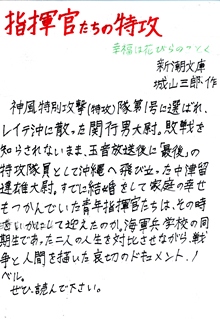 指揮官たちの特攻
幸福は花びらのごとく
新潮文庫
城山三郎・作
神風特別攻撃(特攻)隊第1号に選ばれ、
レイテ沖に散った関行男大尉。敗戦を
知らされないまま、玉音放送後に「最後」の
特攻隊員として沖縄へ飛び立った中津留
達雄大尉。すでに結婚をして家庭の幸せ
もつかんでいた青年指揮官たちは、その時
をいかにして迎えたのか。海軍兵学校の同
期生であった二人の人生を対比させながら、戦
争と人間を描いた哀切のドキュメントノ
ベル。
ぜひ、読んで下さい。